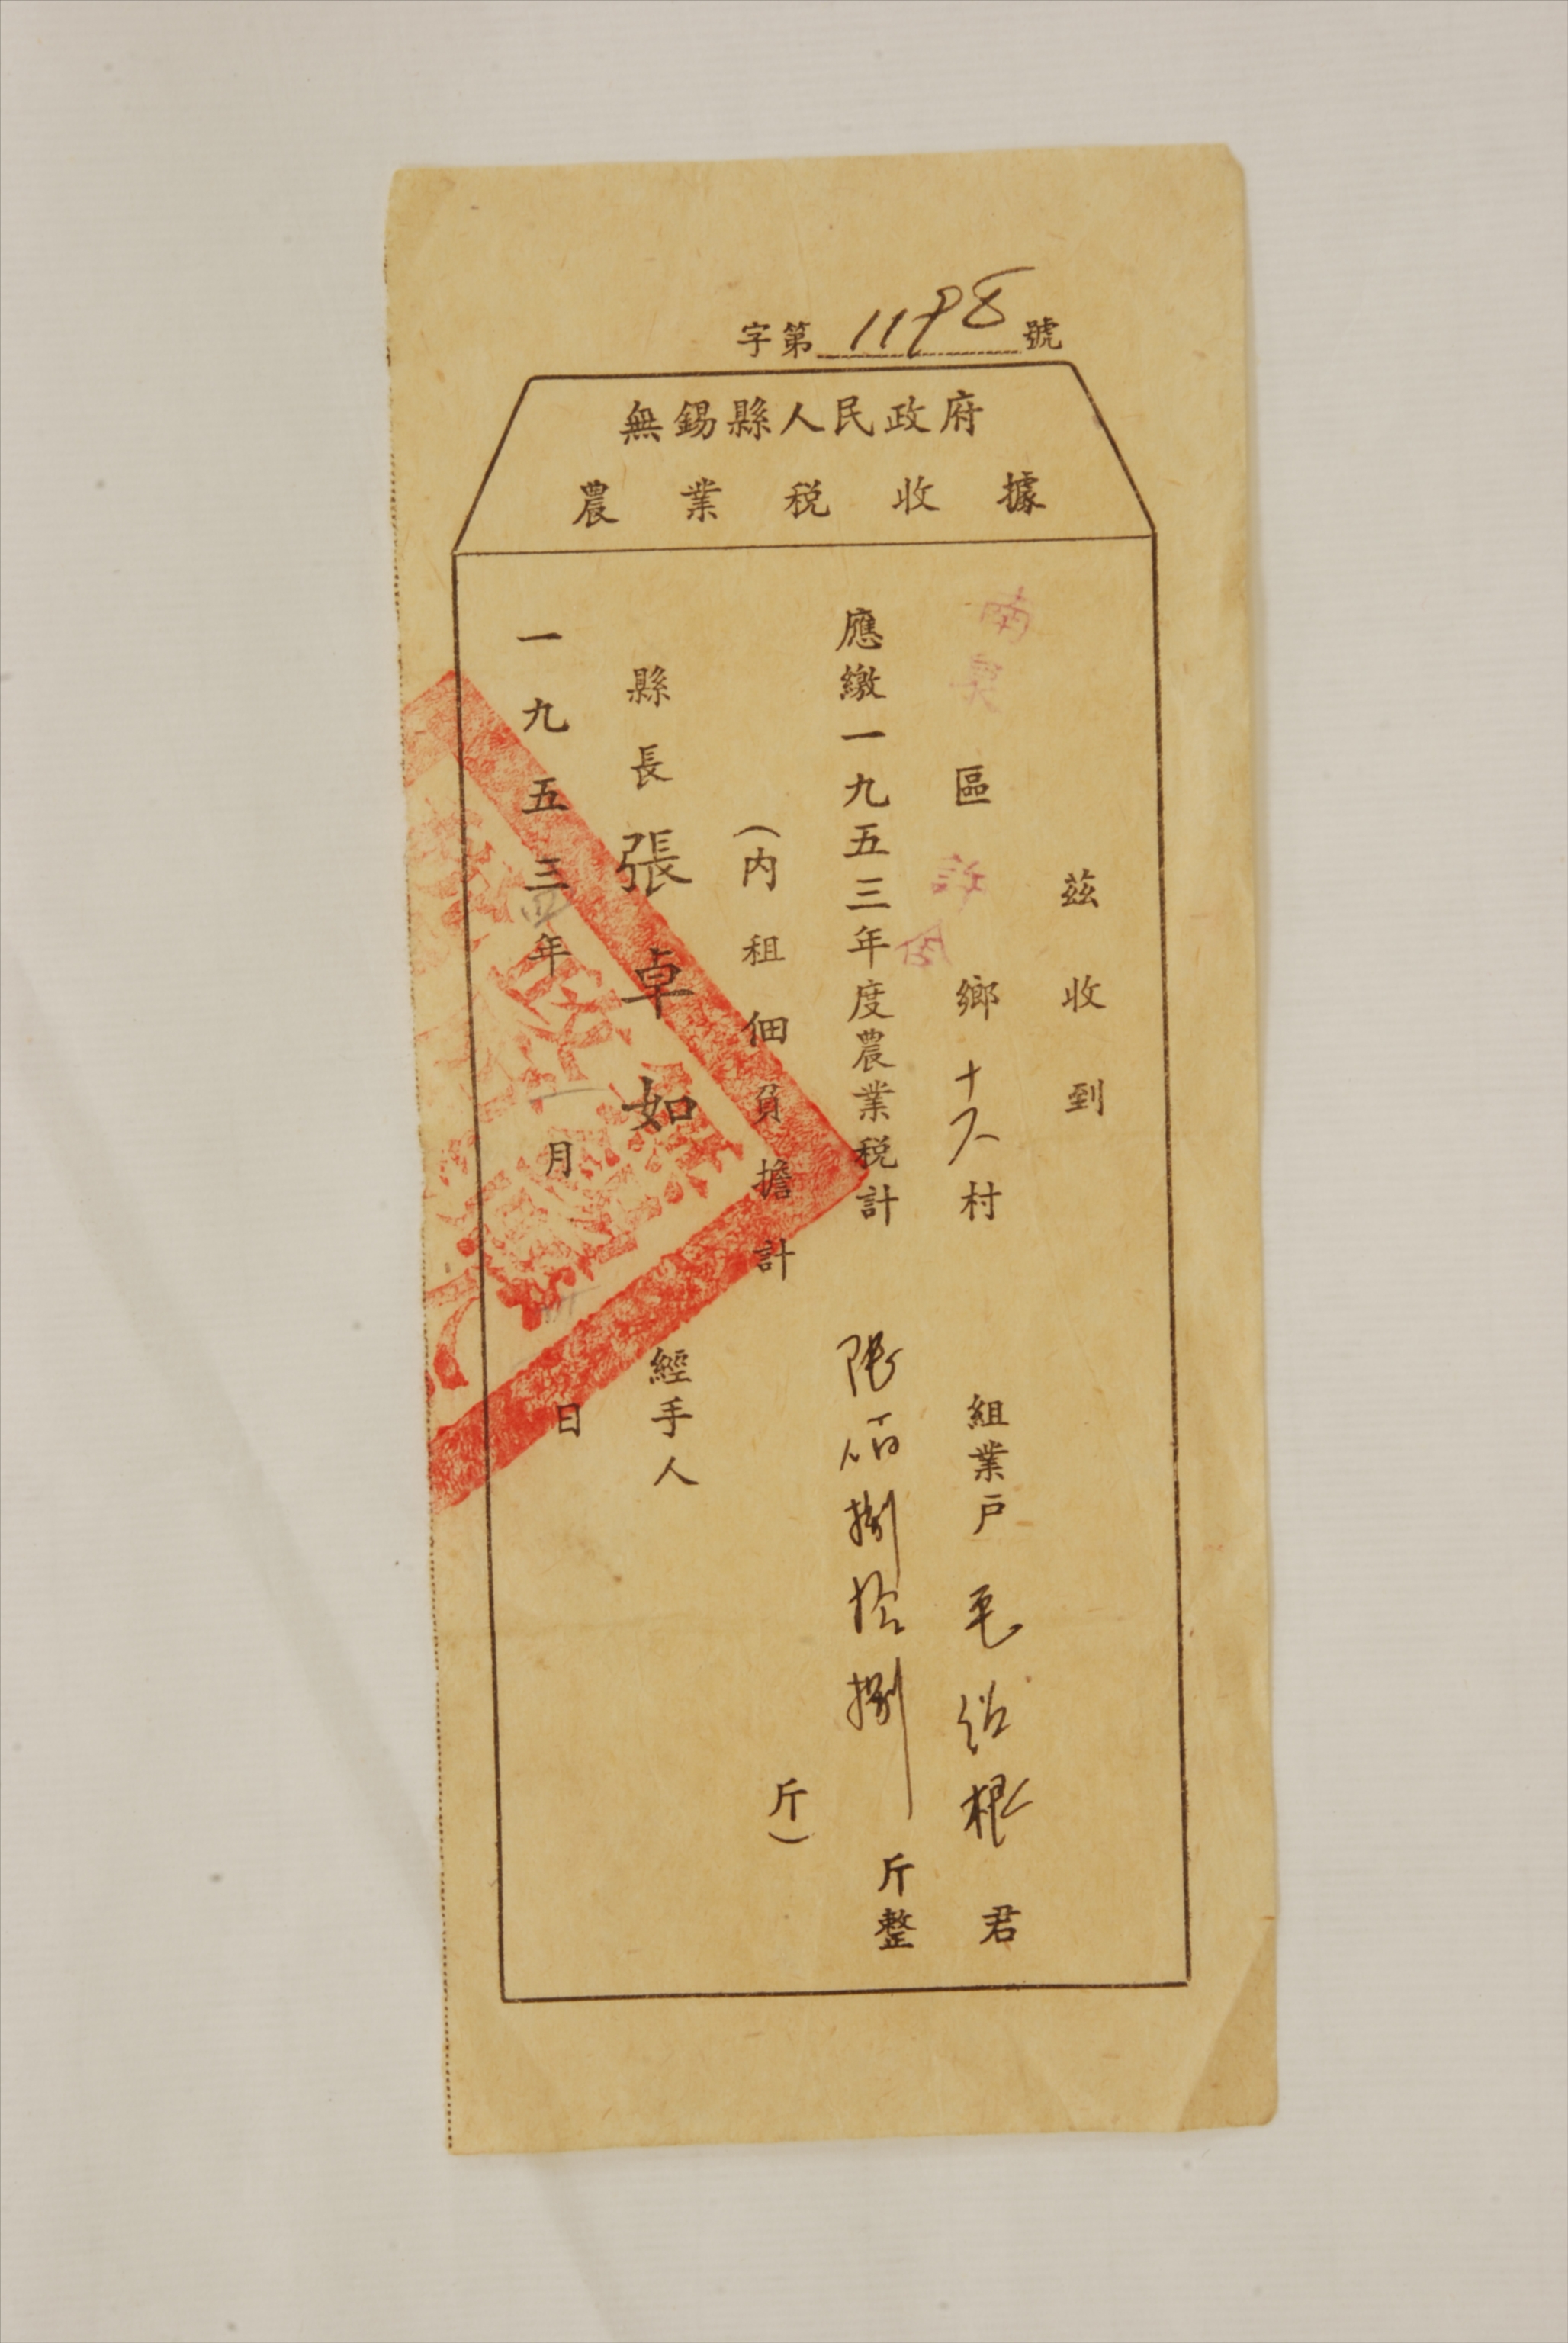 字第1198號
無錫縣人民政府
農業税收據
茲收到
南 區 鄉十八村 組業戶 毛紹根 君
應繳一九五三年度農業税計 佰捌拾捌 斤整
(內租佃負擔計 斤)
縣長 張卓如 經手人
一九五三四年一月 日